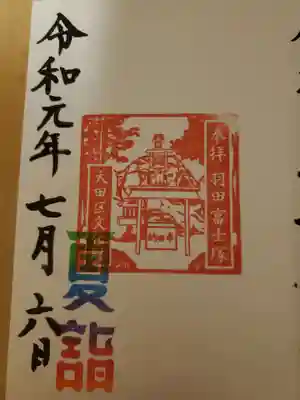 奉拝 羽田富士塚
大田区文化
令和元年 七月 六日
夏詣